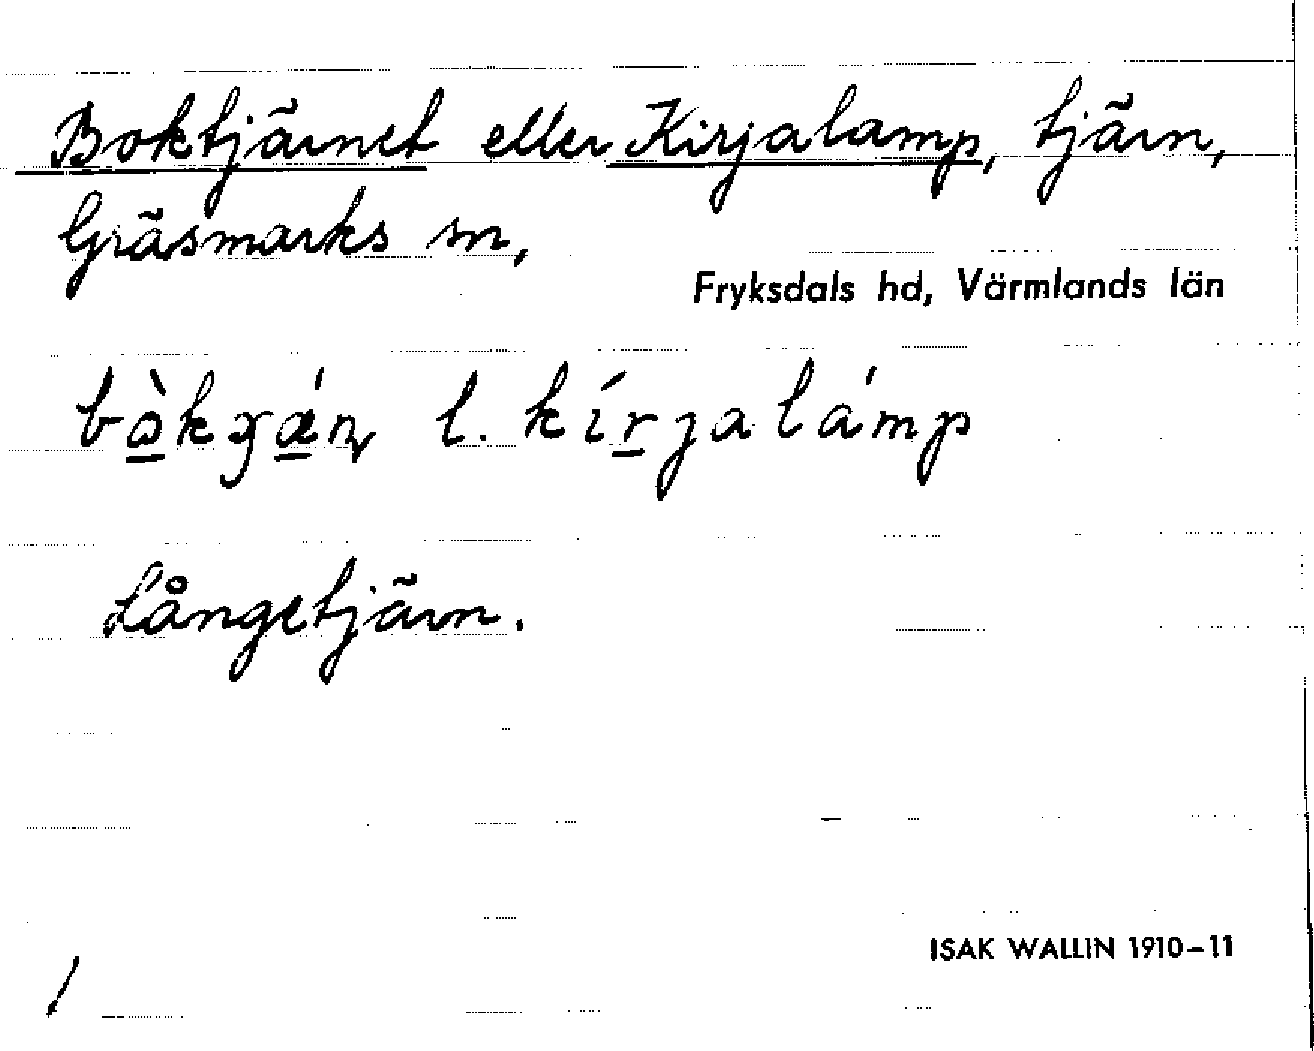 Boktjärnet eller Kirjalamp, tjärn,
Gräsmarks sn,
Fryksdals hd, Värmlands län
l. kírjalámp
Långetjärn.
ISAK WALLIN 1910–11